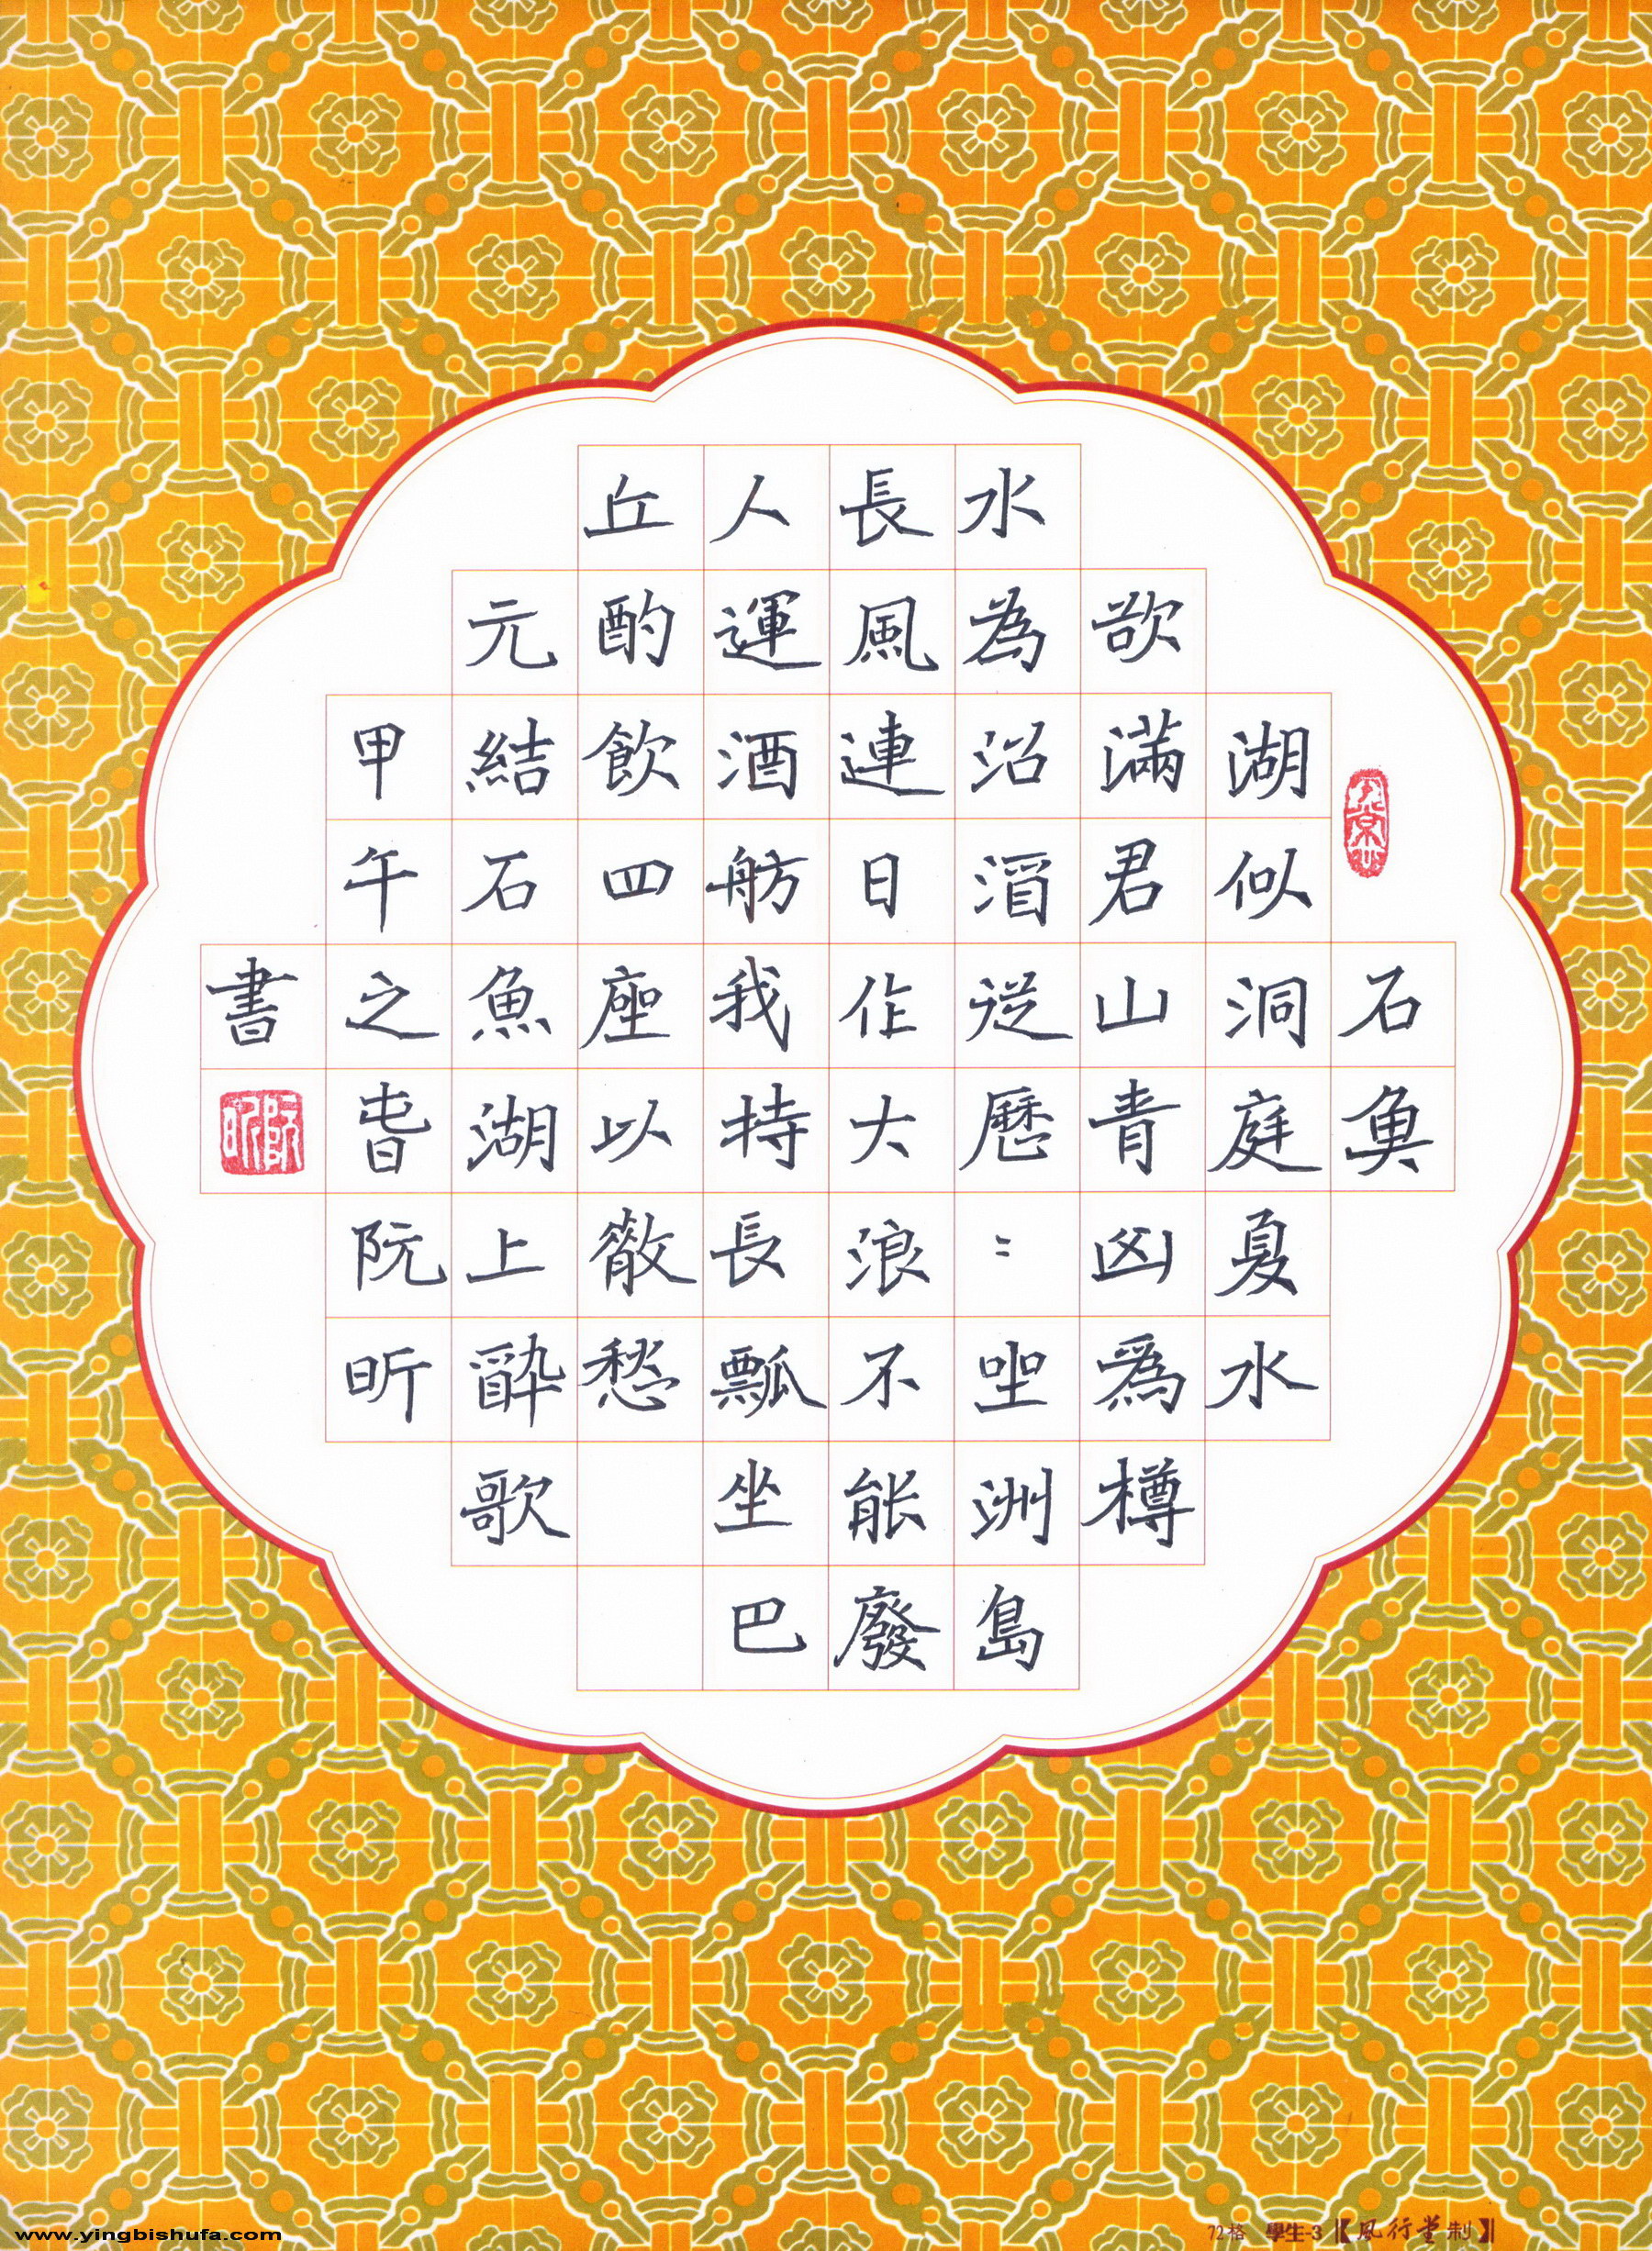 石魚
湖似洞庭夏水
欲滿君山青凶爲樽
水為沼湏從歷〻坐洲島
長風連日作大浪不能廢
人運酒舫我持長瓢坐巴
丘酌飲四座以散愁
元結石魚湖上醉歌
甲午之旾阮昕
書
阮昕
www.yingbishufa.com
72格 學生-3【風行堂制】